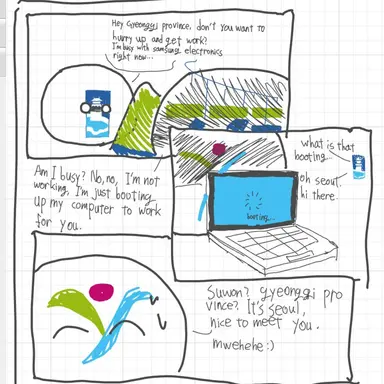 Hey Gyeonggi province, don't you want to
hurry up and get work?
I'm busy with samsung electronics
right now...
what is that
booting...
Am I busy? No, no, I'm not
working, I'm just booting
up my computer to work
for you.
oh seoul.
hi there.
booting...
Suwon? gyeonggi pro
vince? It's seoul,
nice to meet you.
mwehehe:)